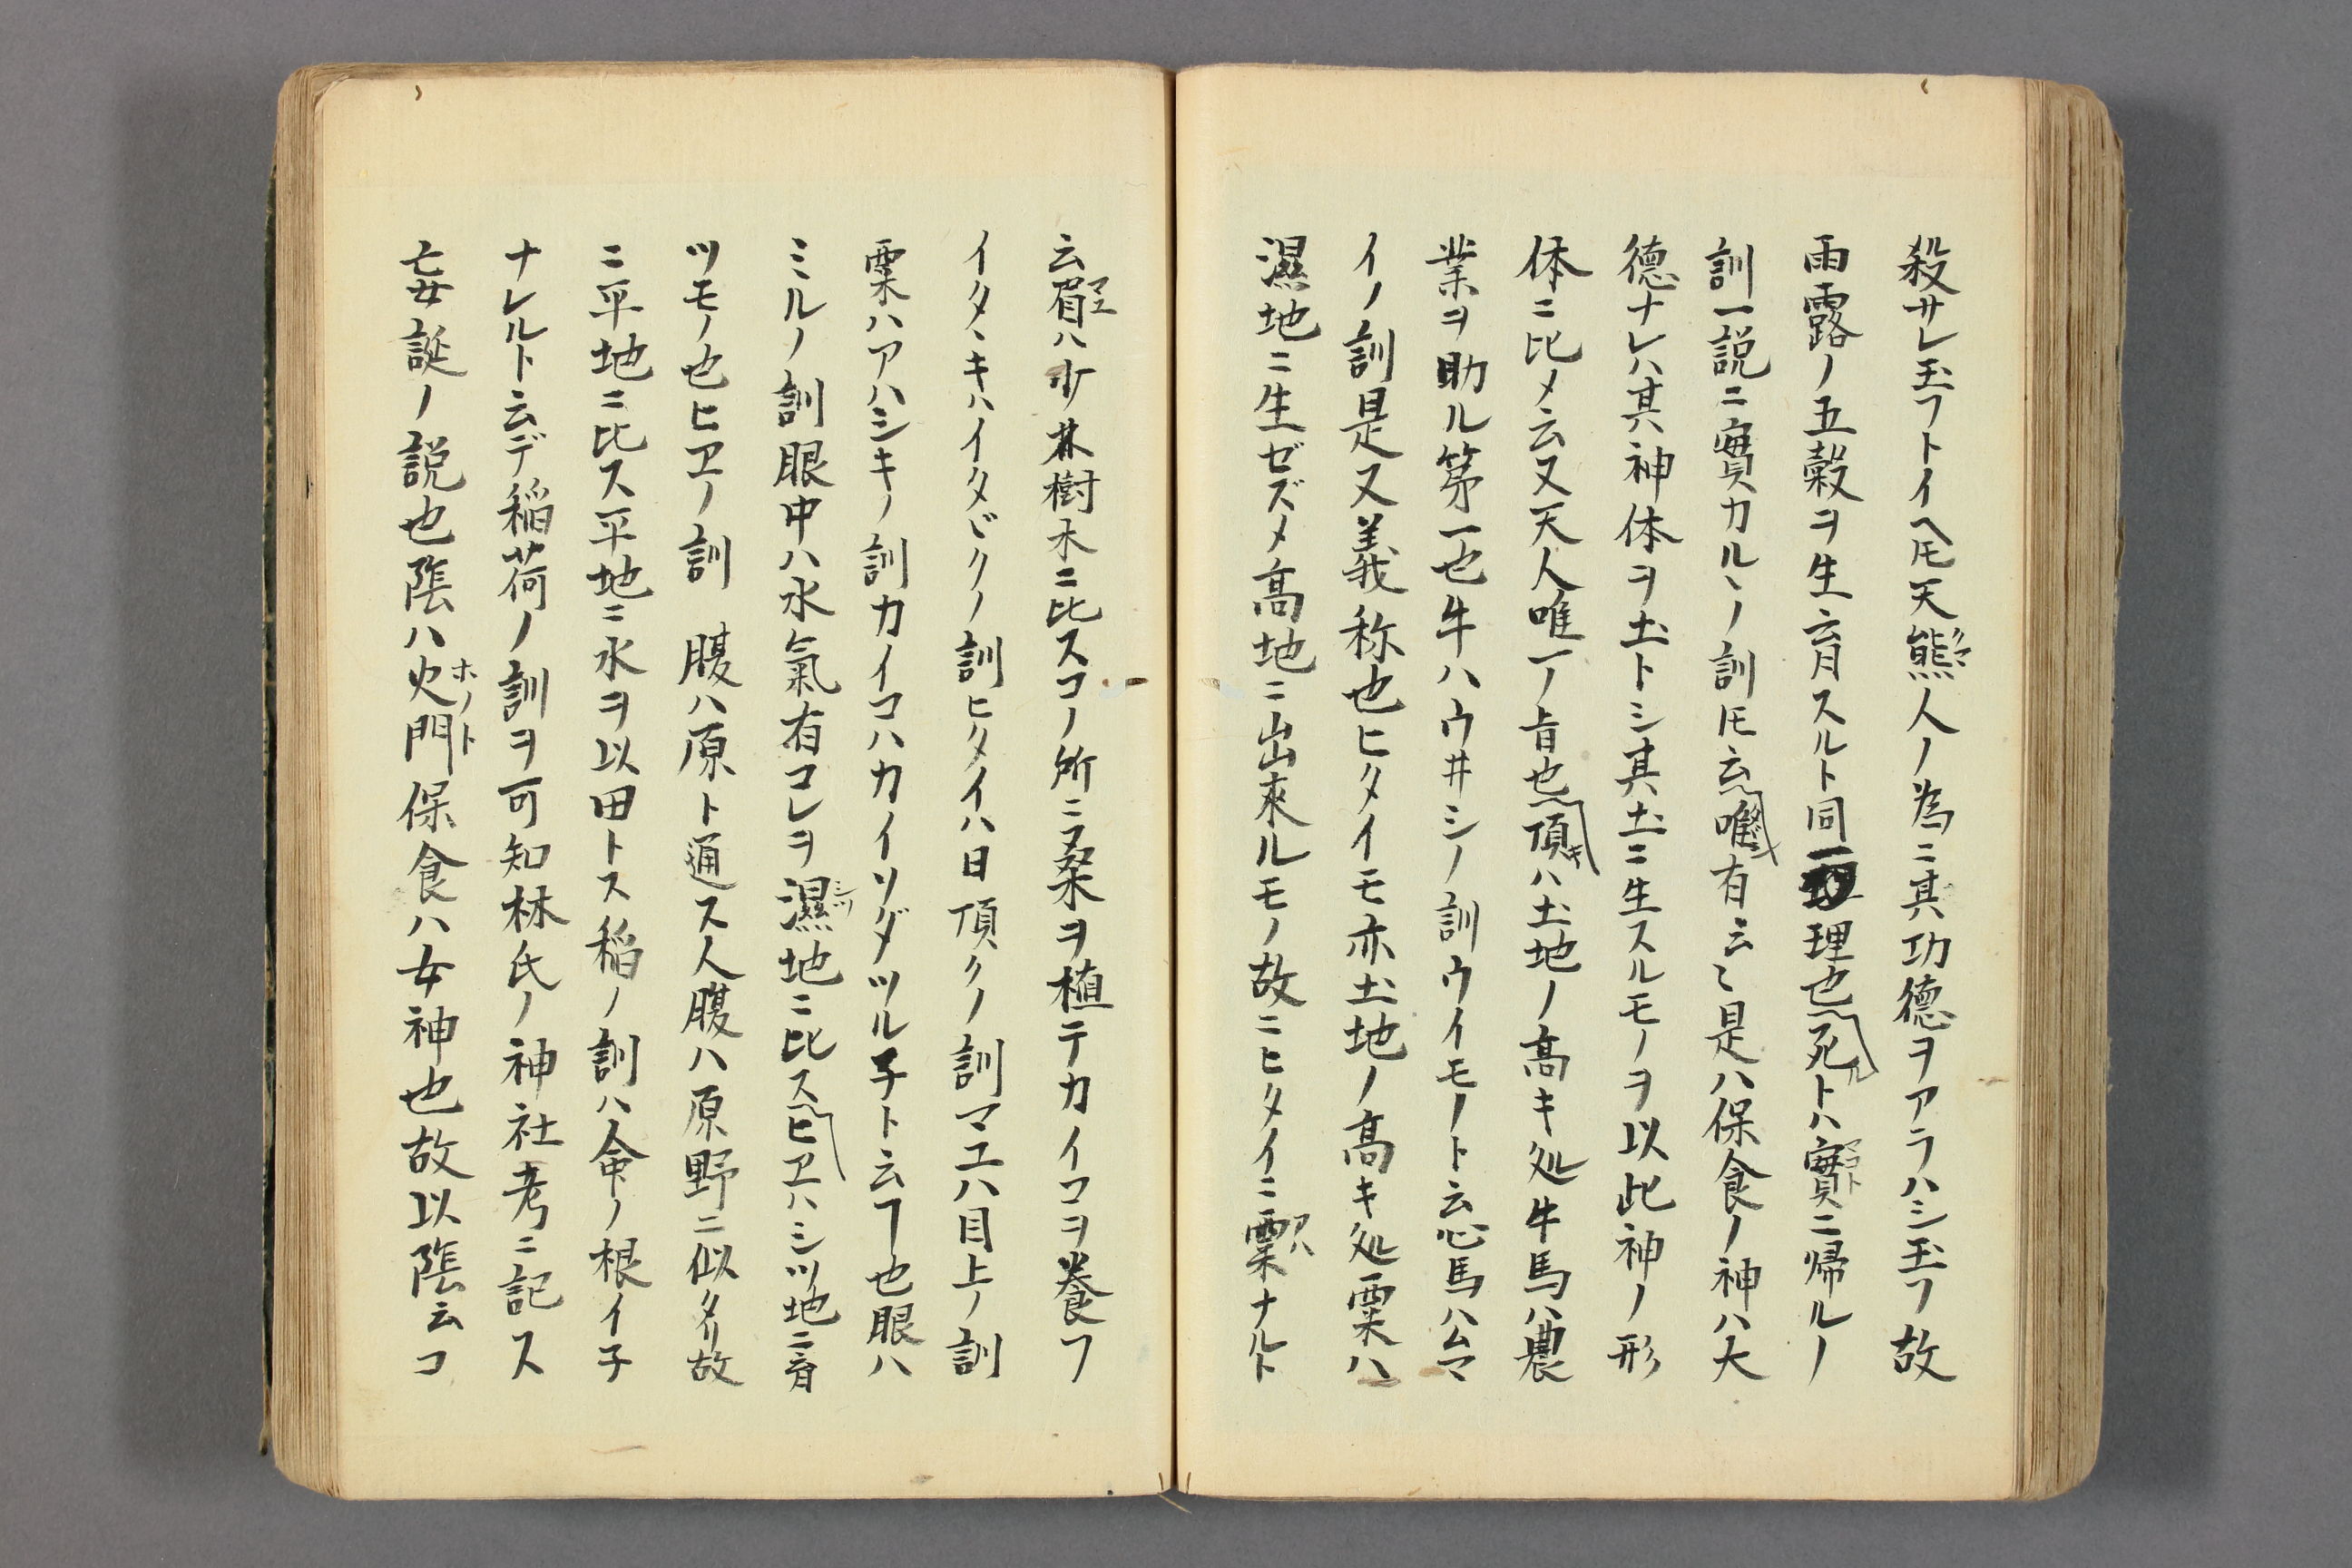 殺サレ玉フトイヘ𪜈天熊人ノ為ニ其功徳ヲアラハシ玉フ故
雨露ノ五穀ヲ生育スルト同一理也死トハ實ニ帰ルノ
訓一説ニ實カルヽノ訓𪜈云唯有云〻是ハ保食ノ神ハ大
徳ナレハ其神体ヲ土トシ其土ニ生スルモノヲ以此神ノ形
体ニ比メ云又天人唯一ノ旨也頂ハ土地ノ高キ処牛馬ハ農
業ヲ助ル第一也牛ハウ井シノ訓ウイモノト云心馬ハムマ
イノ訓是又義称也ヒタイモ亦土地ノ高キ処粟ハ
濕地ニ生ゼズメ高地ニ出来ルモノ故ニヒタイニ粟ナルト
云眉ハ少林樹木ニ比スコノ所ニ桑ヲ植テカイコヲ養フ
イタヽキハイタビクノ訓ヒタイハ日頂クノ訓マユハ目上ノ訓
粟ハアハシキノ訓カイコハカイソダツル子ト云ヿ也眼ハ
ミヽルノ訓眼中ハ水氣有コレヲ濕地ニ比スヒヱハシツ地ニ育
ツモノ也ヒヱノ訓 腹ハ原ト通ス人腹ハ原野ニ似タリ故
ニ平地ニ比ス平地ニ水ヲ以田トス稲ノ訓ハ命ノ根イ子
ナレルト云デ稲荷ノ訓ヲ可知林氏ノ神社考ニ記ス
妄誕ノ説也陰ハ火門保食ハ女神也故以陰云コ